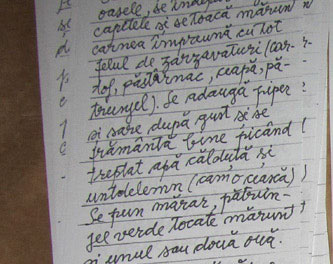 oasele, se îndepăr
capetele și se toacă mărunt
carnea împreună cu tot
felul de zarzavaturi (car-
tof, păstârnac, ceapă, pă-
trunjel). Se adaugă piper
și sare după gust și se
frământă bine picând
treptat apă călduță și
untdelemn (cam, o ceașcă)
Se pun mărar, pătrun-
jel verde tocate mărunt
și unul sau două ouă.